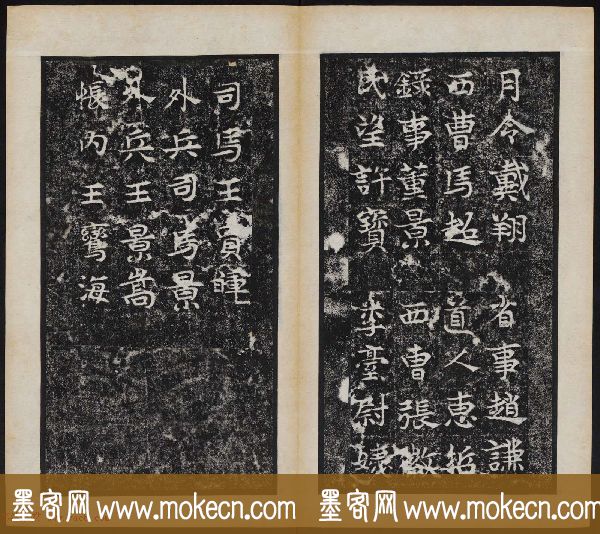 月令戴翔 省事趙謙
西曹馬超 道人惠哲
錄事董景 西曹張
民望許寶 李臺尉
司馬王賓暉
外兵司馬景
外兵王景嵩
帳內王鸞海
墨客网 www.mokecn.com 墨客网 www.mokecn.com